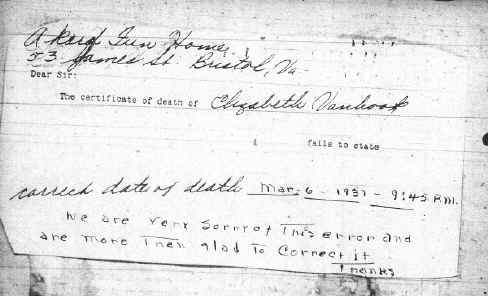 Akard Fun Home,
53 James St. Bristol, Va
Dear Sir:
The certificate of death of Elizabeth Vanhook
fails to state
correch date of death Mar. 6 - 1937 - 9:45 P.M.
We are very Sorry of This error and
are more Then glad To Correct it
Thanks